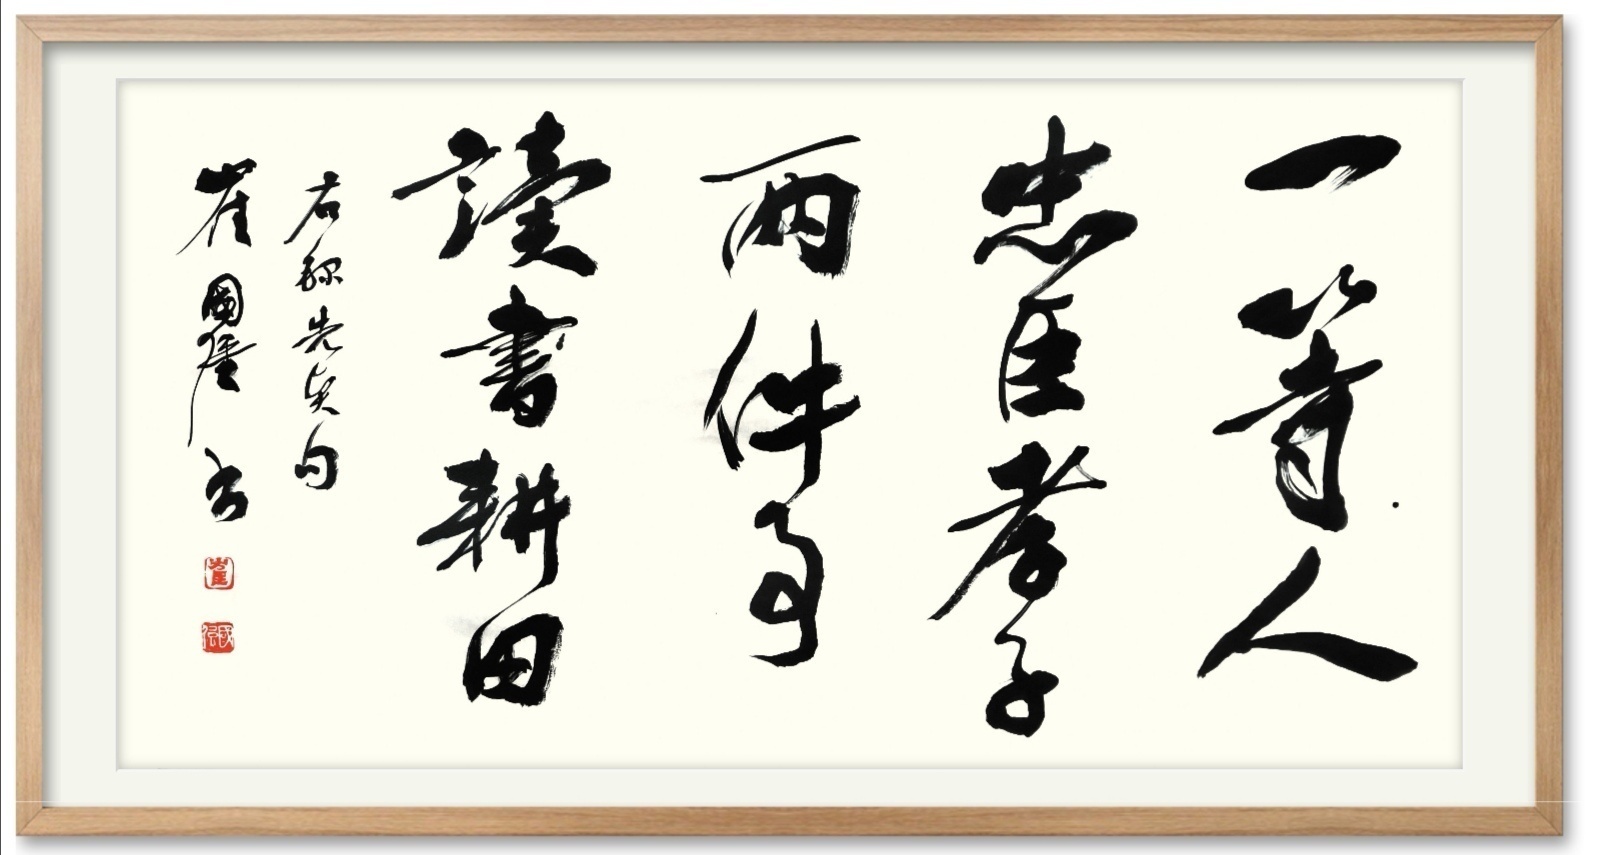 一等人
忠臣孝子
兩件事
讀書耕田
右錄先賢句
崔國 书
崔